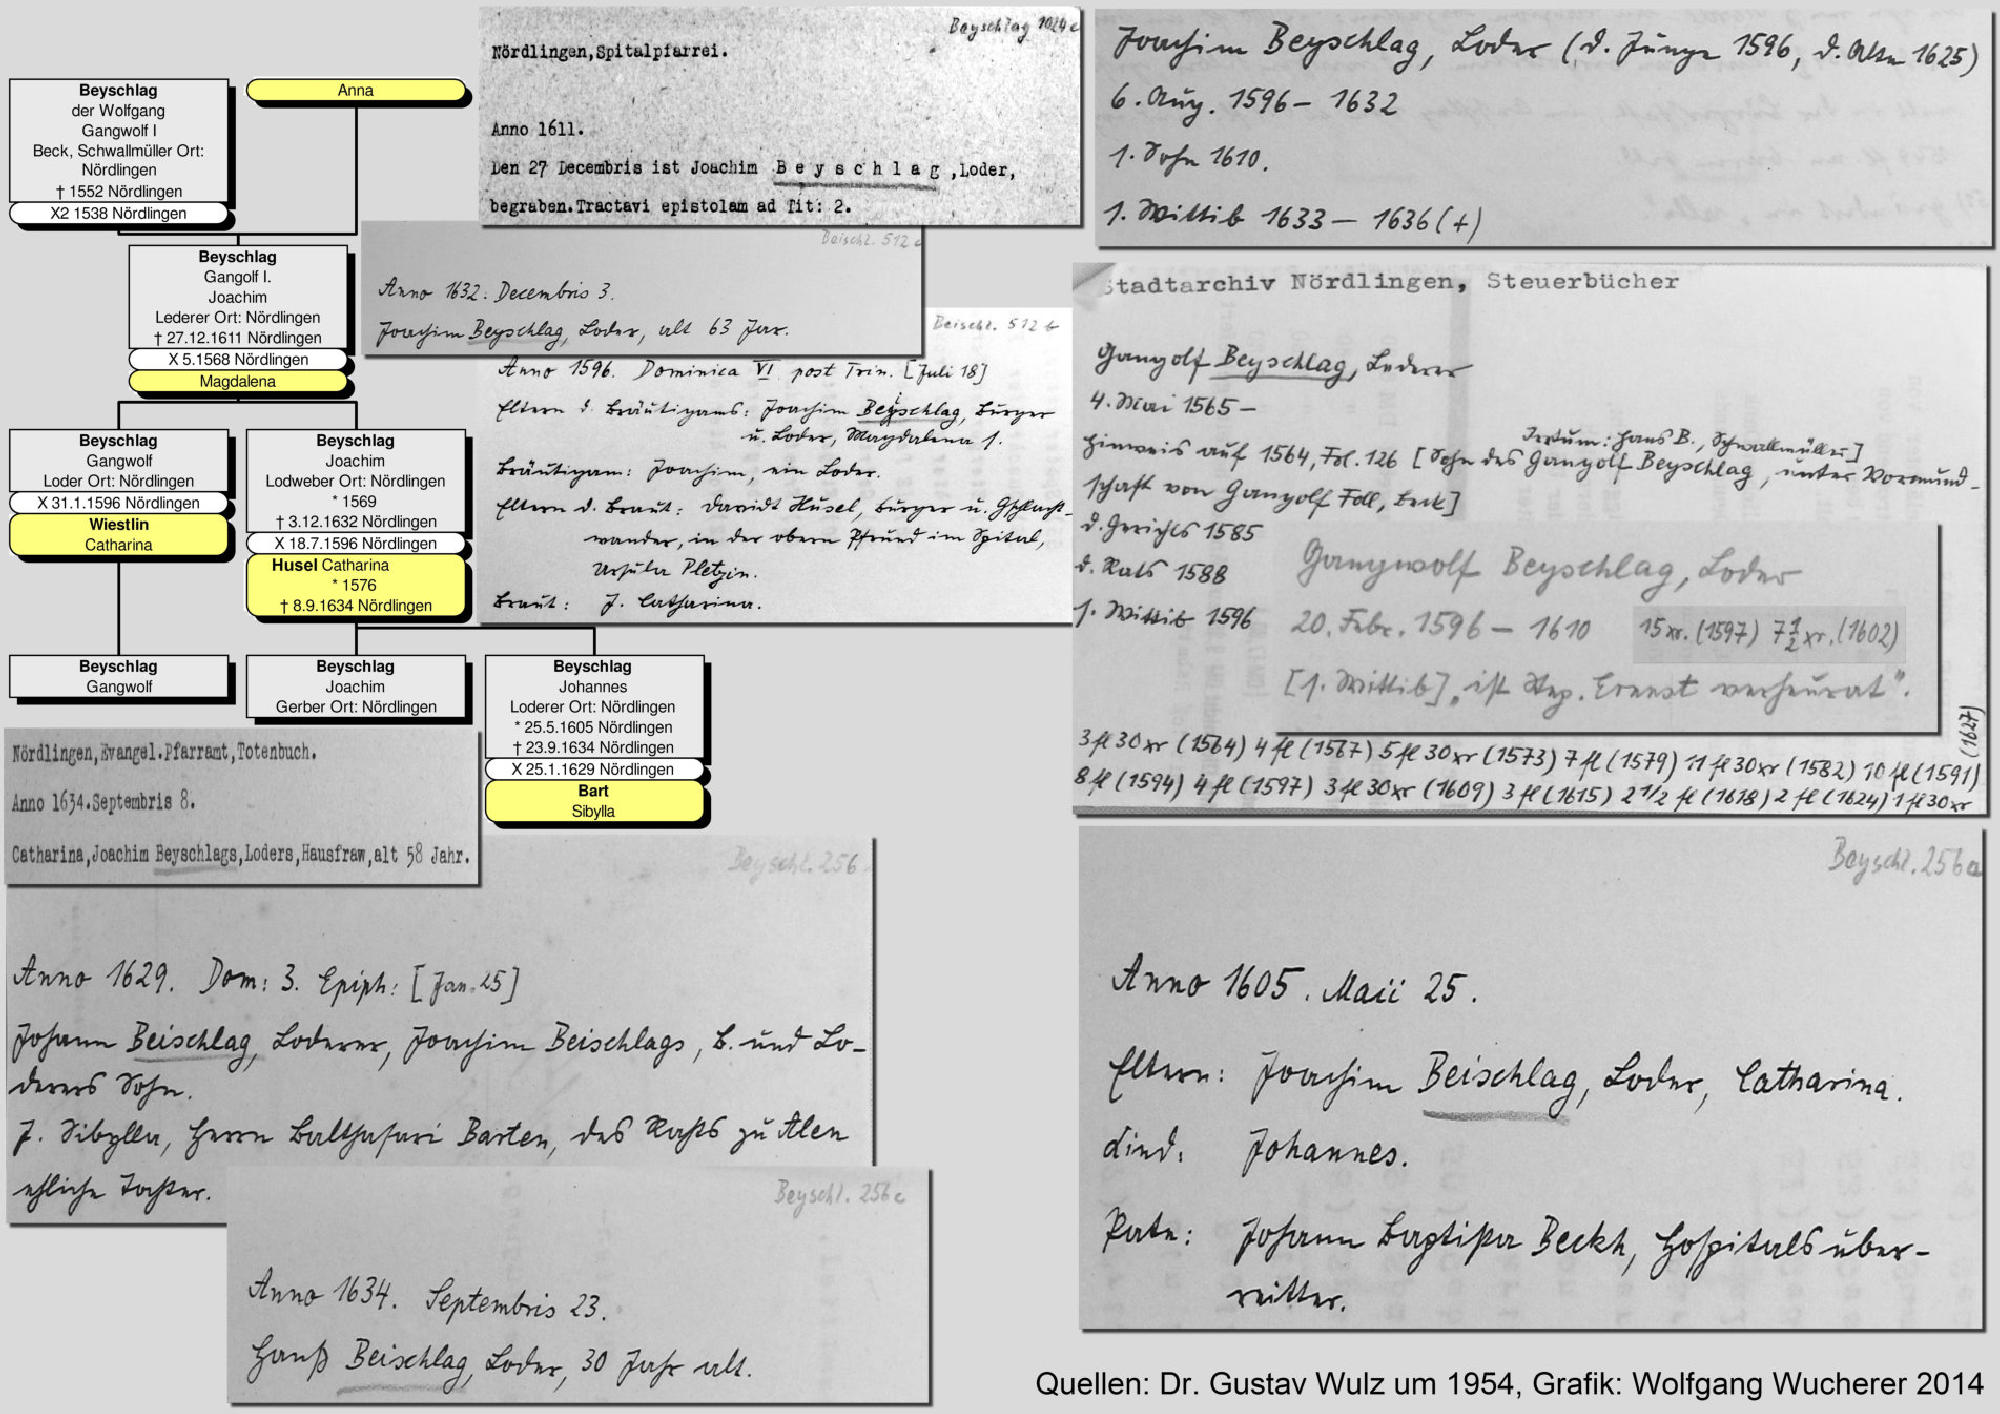 Beyschlag
der Wolfgang
Gangwolf I
Beck, Schwallmüller Ort:
Nördlingen
† 1552 Nördlingen
X2 1538 Nördlingen
Anna
Beyschlag
Gangolf I.
Joachim
Lederer Ort: Nördlingen
† 27.12.1611 Nördlingen
X 5.1568 Nördlingen
Magdalena
Beyschlag
Gangwolf
Loder Ort: Nördlingen
X 31.1.1596 Nördlingen
Wiestlin
Catharina
Beyschlag
Joachim
Lodweber Ort: Nördlingen
* 1569
† 3.12.1632 Nördlingen
X 18.7.1596 Nördlingen
Husel Catharina
* 1576
† 8.9.1634 Nördlingen
Beyschlag
Gangwolf
Beyschlag
Joachim
Gerber Ort: Nördlingen
Beyschlag
Johannes
Loderer Ort: Nördlingen
* 25.5.1605 Nördlingen
† 23.9.1634 Nördlingen
X 25.1.1629 Nördlingen
Bart
Sibylla
Beyschlag 1024c
Nördlingen,Spitalpfarrei.
Anno 1611.
Den 27 Decembris ist Joachim B e y s c h l a g ,Loder,
begraben.Tractavi epistolam ad Tit: 2.
Beischl. 512 c
Anno 1632: Decembris 3.
Joachim Beyschlag, Loder, alt 63 Jar.
Beischl. 512 b
Anno 1596. Dominica VI post Trin. [Juli 18]
Eltern d. Bräutigams: Joachim Beyschlag, Bürger
u. Loder, Magdalena f.
Bräutigam: Joachim, ein Loder.
Eltern d. Braut: Davidt Husel, Bürger u. Gschlacht-
wander, in der obern Pfründ im Spital,
Ursula Pletzin.
Braut: J. Catharina.
Joachim Beyschlag, Loder (d. Junge 1596, d. Alte 1625)
6. Aug. 1596 – 1632
1. Sohn 1610.
1. Wittib 1633 – 1636 (+)
Stadtarchiv Nördlingen, Steuerbücher
Gangolf Beyschlag, Lederer
4. Mai 1565 –
Irrtum: Hans B., Schwallmüller]
Hinweis auf 1564, Fol. 126 [Sohn des Gangolf Beyschlag, unter Vormund-
schaft von Gangolf Foll, Beck]
d. Gerichts 1585
d. Rats 1588
1. Wittib 1596
Gangwolf Beyschlag, Loder
20. Febr. 1596 – 1610 15 xr. (1597) 7 1/2 xr. (1602)
[1. Wittib] „ist Step. Ernnst verheurat".
3 fl 30 xr (1564) 4 fl (1567) 5 fl 30 xr (1573) 7 fl (1579) 11 fl 30 xr (1582) 10 fl (1591)
8 fl (1594) 4 fl (1597) 3 fl 30 xr (1609) 3 fl (1615) 2 1/2 fl (1618) 2 fl (1624) 1 fl 30 xr
(1627)
Nördlingen,Evangel.Pfarramt,Totenbuch.
Anno 1634.Septembris 8.
Catharina,Joachim Beyschlags,Loders,Hausfraw,alt 58 Jahr.
Beyschl. 256
Anno 1629. Dom: 3. Epiph: [Jan. 25]
Johann Beischlag, Loderer, Joachim Beischlags, B. und Lo-
derers Sohn.
J. Sibylla, Herrn Balthasari Barten, des Rahts zu Alen
ehliche Tochter.
Beyschl. 256 c
Anno 1634. Septembris 23.
Hanß Beischlag, Loder, 30 Jahr alt.
Beyschl. 256a
Anno 1605. Maii 25.
Eltern: Joachim Beischlag, Loder, Catharina.
Kind: Johannes.
Pate: Johann Baptista Beckh, Hospitals über-
reitter.
Quellen: Dr. Gustav Wulz um 1954, Grafik: Wolfgang Wucherer 2014